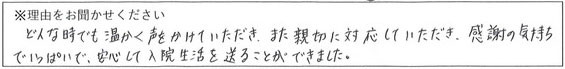 ※理由をお聞かせください
どんな時でも温かく声をかけていただき、また親切に対応していただき、感謝の気持ち
でいっぱいで、安心して入院生活を送ることができました。